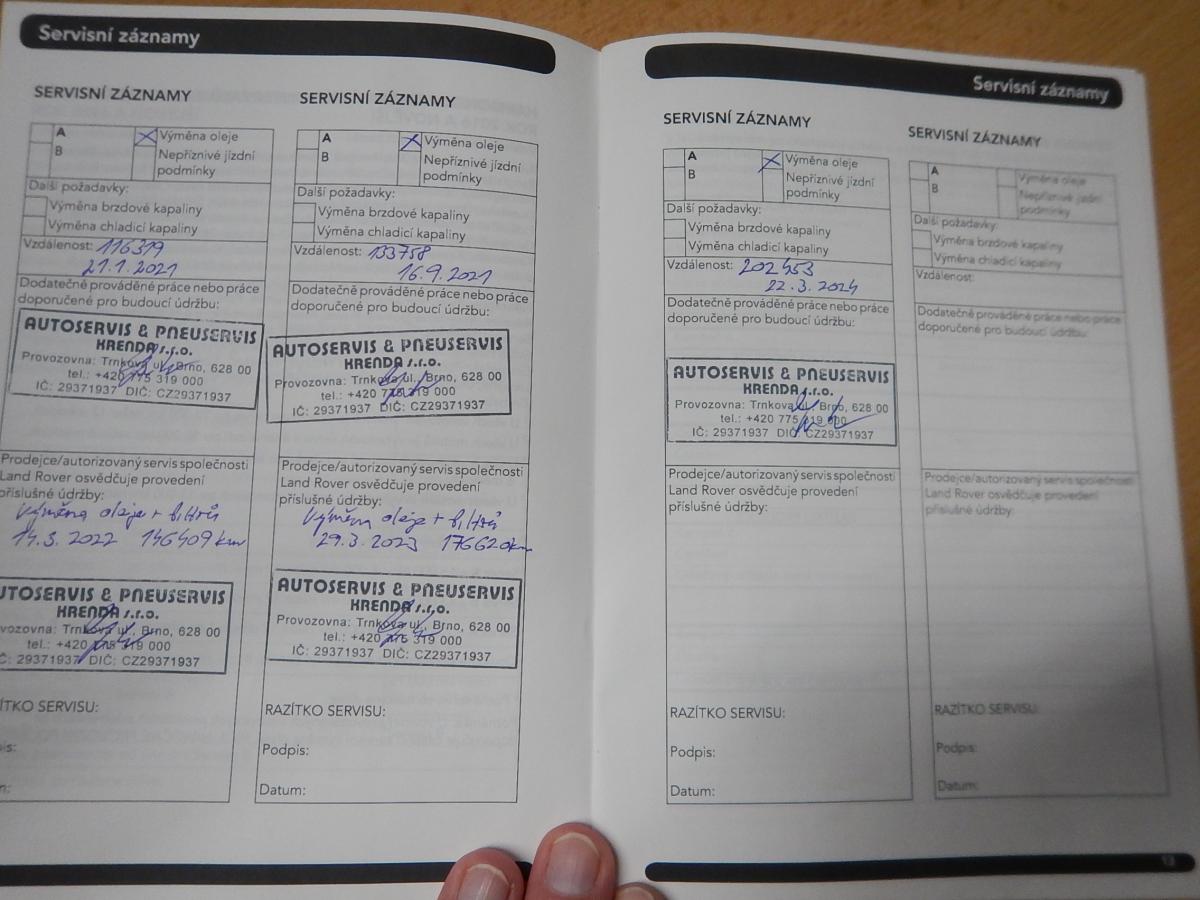 Servisní záznamy
SERVISNÍ ZÁZNAMY
A
Výměna oleje
B
Nepříznivé jízdní
podmínky
Další požadavky:
Výměna brzdové kapaliny
Výměna chladicí kapaliny
Vzdálenost: 116319
21.1.2021
Dodatečně prováděné práce nebo práce
doporučené pro budoucí údržbu:
AUTOSERVIS & PNEUSERVIS
KRENDA s.r.o.
Provozovna: Trnkova ul., Brno, 628 00
tel.: +420 775 319 000
IČ: 29371937 DIČ: CZ29371937
Prodejce/autorizovaný servis společnosti
Land Rover osvědčuje provedení
příslušné údržby:
Výměna oleje + filtrů
14.3.2022 146409 km
UTOSERVIS & PNEUSERVIS
KRENDA s.r.o.
vozovna: Trnkova ul., Brno, 628 00
tel.: +420 775 319 000
Č: 29371937 DIČ: CZ29371937
ZÍTKO SERVISU:
is:
m:
SERVISNÍ ZÁZNAMY
A
Výměna oleje
B
Nepříznivé jízdní
podmínky
Další požadavky:
Výměna brzdové kapaliny
Výměna chladicí kapaliny
Vzdálenost: 133758
16.9.2021
Dodatečně prováděné práce nebo práce
doporučené pro budoucí údržbu:
AUTOSERVIS & PNEUSERVIS
KRENDA s.r.o.
Provozovna: Trnkova ul., Brno, 628 00
tel.: +420 775 319 000
IČ: 29371937 DIČ: CZ29371937
Prodejce/autorizovaný servis společnosti
Land Rover osvědčuje provedení
příslušné údržby:
Výměna oleje + filtrů
29.3.2023 176620km
AUTOSERVIS & PNEUSERVIS
KRENDA s.r.o.
Provozovna: Trnkova ul., Brno, 628 00
tel.: +420 775 319 000
IČ: 29371937 DIČ: CZ29371937
RAZÍTKO SERVISU:
Podpis:
Datum:
Servisní záznamy
SERVISNÍ ZÁZNAMY
A
Výměna oleje
B
Nepříznivé jízdní
podmínky
Další požadavky:
Výměna brzdové kapaliny
Výměna chladicí kapaliny
Vzdálenost: 202453
22.3.2024
Dodatečně prováděné práce nebo práce
doporučené pro budoucí údržbu:
AUTOSERVIS & PNEUSERVIS
KRENDA s.r.o.
Provozovna: Trnkova ul., Brno, 628 00
tel.: +420 775 319 000
IČ: 29371937 DIČ: CZ29371937
Prodejce/autorizovaný servis společnosti
Land Rover osvědčuje provedení
příslušné údržby:
RAZÍTKO SERVISU:
Podpis:
Datum:
SERVISNÍ ZÁZNAMY
A
Výměna oleje
B
Nepříznivé jízdní
podmínky
Další požadavky:
Výměna brzdové kapaliny
Výměna chladicí kapaliny
Vzdálenost:
Dodatečně prováděné práce nebo práce
doporučené pro budoucí údržbu:
Prodejce/autorizovaný servis společnosti
Land Rover osvědčuje provedení
příslušné údržby:
RAZÍTKO SERVISU:
Podpis:
Datum:
13